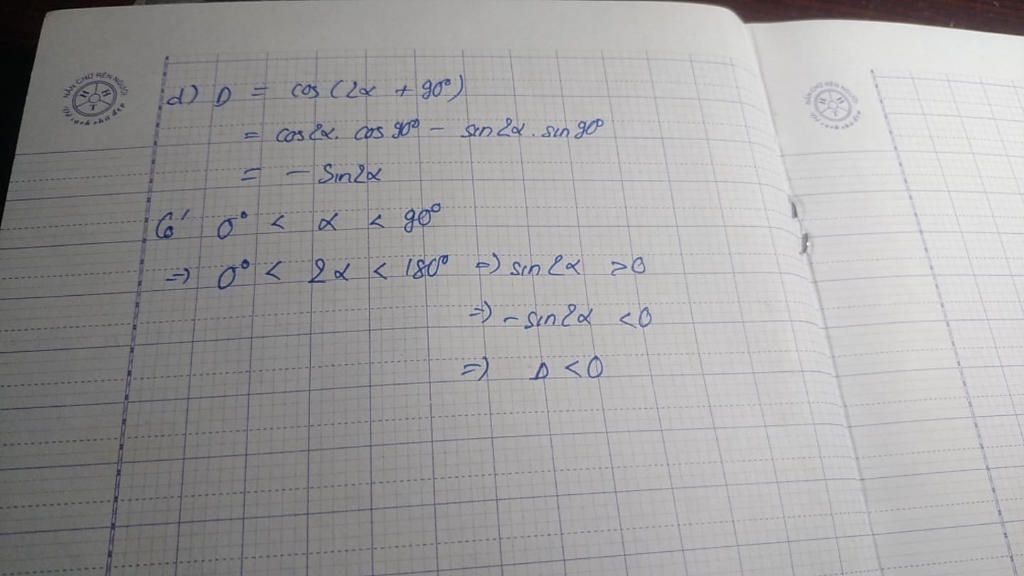 d) D = cos(2α + 90°)
= cos2α. cos90° - sin2α. sin90°
= - Sin2α
Có 0° < α < 90°
=> 0° < 2α < 180° => sin2α >0
=> - sin2α <0
=> D <0